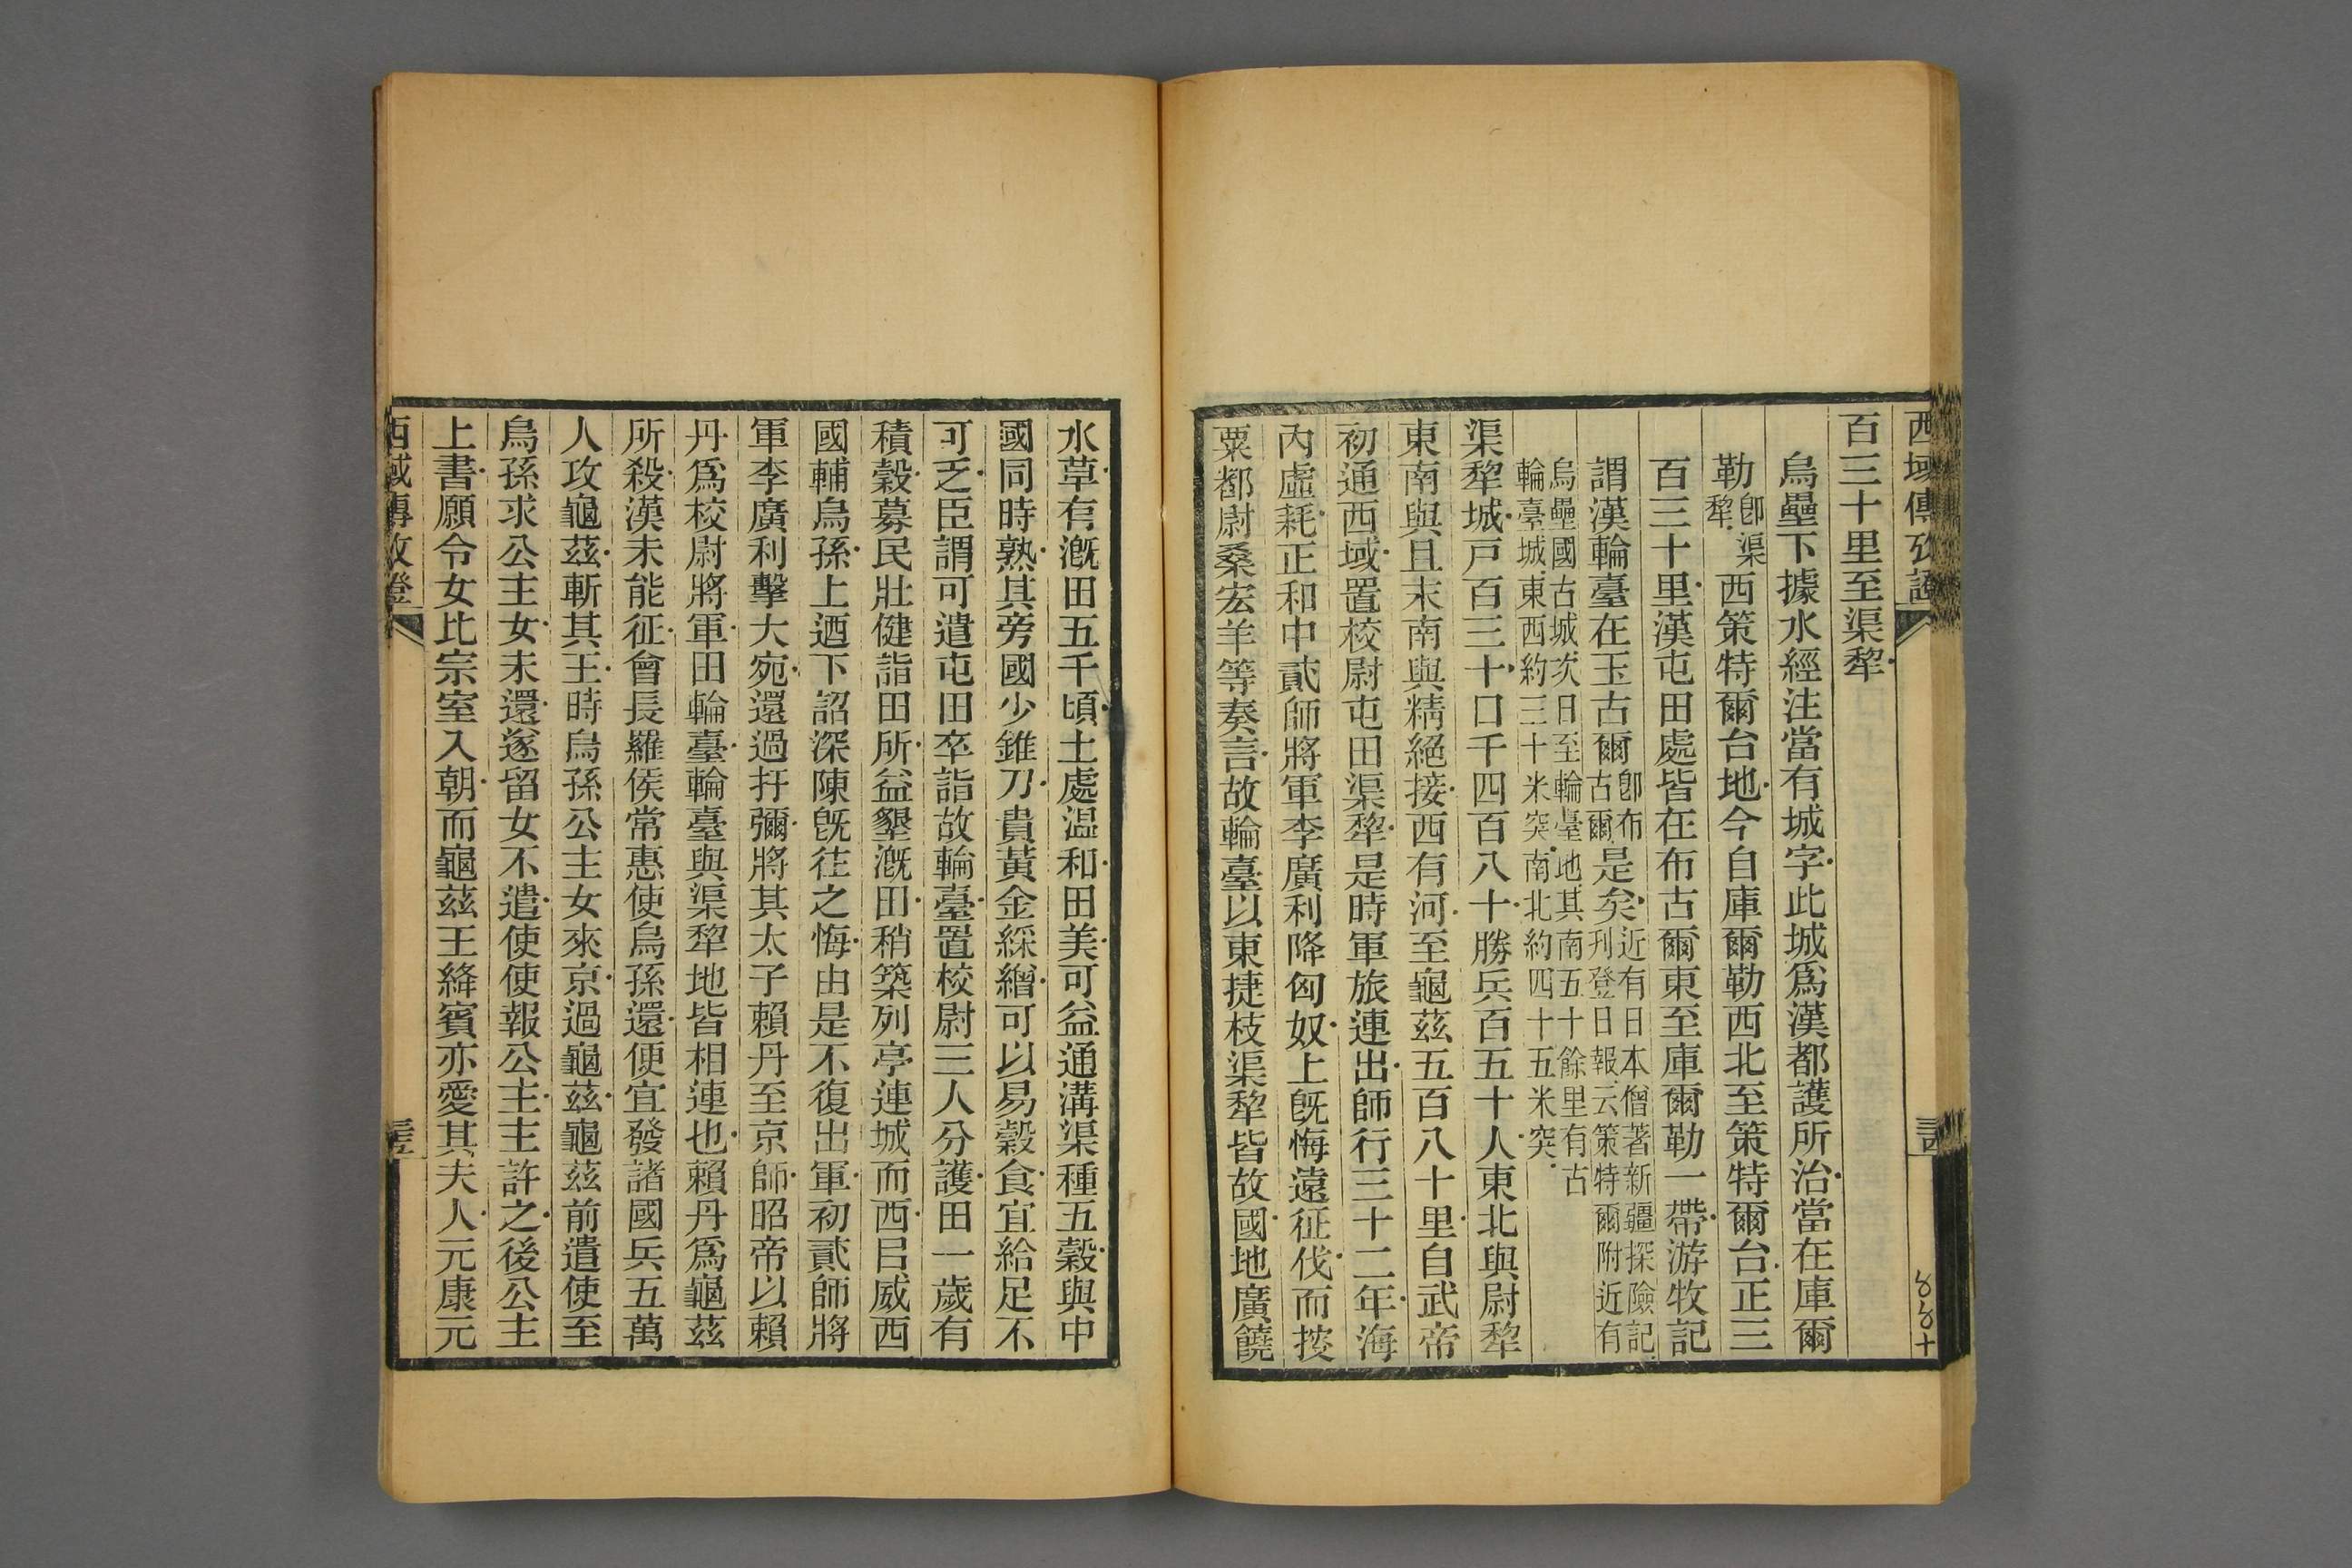 西域傳攷證
百三十里至渠犂
烏壘下據水經注當有城字此城爲漢都護所治當在庫爾
勒卽渠犂西策特爾台地今自庫爾勒西北至策特爾台正三
百三十里漢屯田處皆在布古爾東至庫爾勒一帶游牧記
謂漢輪臺在玉古爾卽布古爾是矣近有日本僧著新疆探險記刊登日報云策特爾附近有
烏壘國古城次日至輪臺地其南五十餘里有古輪臺城東西約三十米突南北約四十五米突
渠犂城戸百三十口千四百八十勝兵百五十人東北與尉犂
東南與且末南與精絕接西有河至龜茲五百八十里自武帝
初通西域置校尉屯田渠犂是時軍旅連出師行三十二年海
內虛耗正和中貳師將軍李廣利降匈奴上旣悔遠征伐而搜
粟都尉桑宏羊等奏言故輪臺以東捷枝渠犂皆故國地廣饒
水草有漑田五千頃土處温和田美可益通溝渠種五穀與中
國同時熟其旁國少錐刀貴黃金綵繒可以易穀食宜給足不
可乏臣謂可遣屯田卒詣故輪臺置校尉三人分護田一歲有
積穀募民壯健詣田所益墾漑田稍築列亭連城而西㠯威西
國輔烏孫上迺下詔深陳旣往之悔由是不復出軍初貳師將
軍李廣利擊大宛還過扜彌將其太子賴丹至京師昭帝以賴
丹爲校尉將軍田輪臺輪臺與渠犂地皆相連也賴丹爲龜茲
所殺漢未能征會長羅侯常惠使烏孫還便宜發諸國兵五萬
人攻龜茲斬其王時烏孫公主女來京過龜茲龜茲前遣使至
烏孫求公主女未還遂留女不遣使使報公主主許之後公主
上書願令女比宗室入朝而龜茲王絳賓亦愛其夫人元康元
西域傳攷證